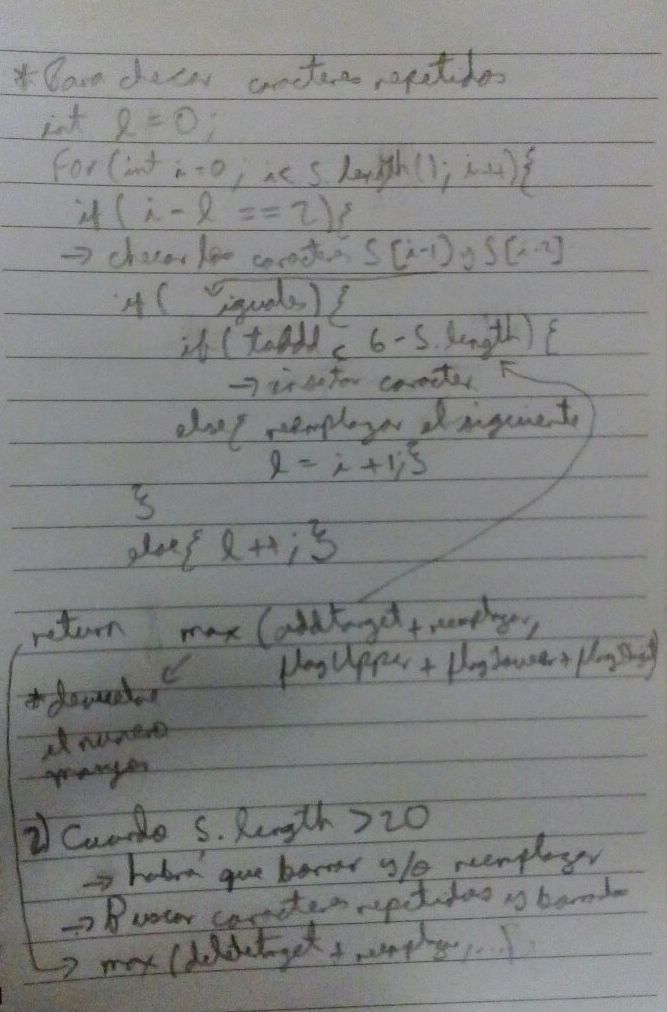 * Para checar caracteres repetidos
int l = 0;
For (int i=0; i< S.length(); i++){
if ( i - l == 2){
→ checar los caracteres S[i-1) y S[i-2]
if ( iguales) {
if ( toAdd < 6 - S.length) {
→ insertar caracter
else{ reemplazar el siguiente
l = i +1;}
}
else{ l ++; }
return max (addtarget + reemplazar,
flagUpper + flagLower + flagDigit)
* devuelve
el numero
mayor
2) Cuando S.length >20
→ habrá que borrar y/o reemplazar
→ Buscar caracteres repetidos y
→ max (deletetarget + reemplazar, ...)